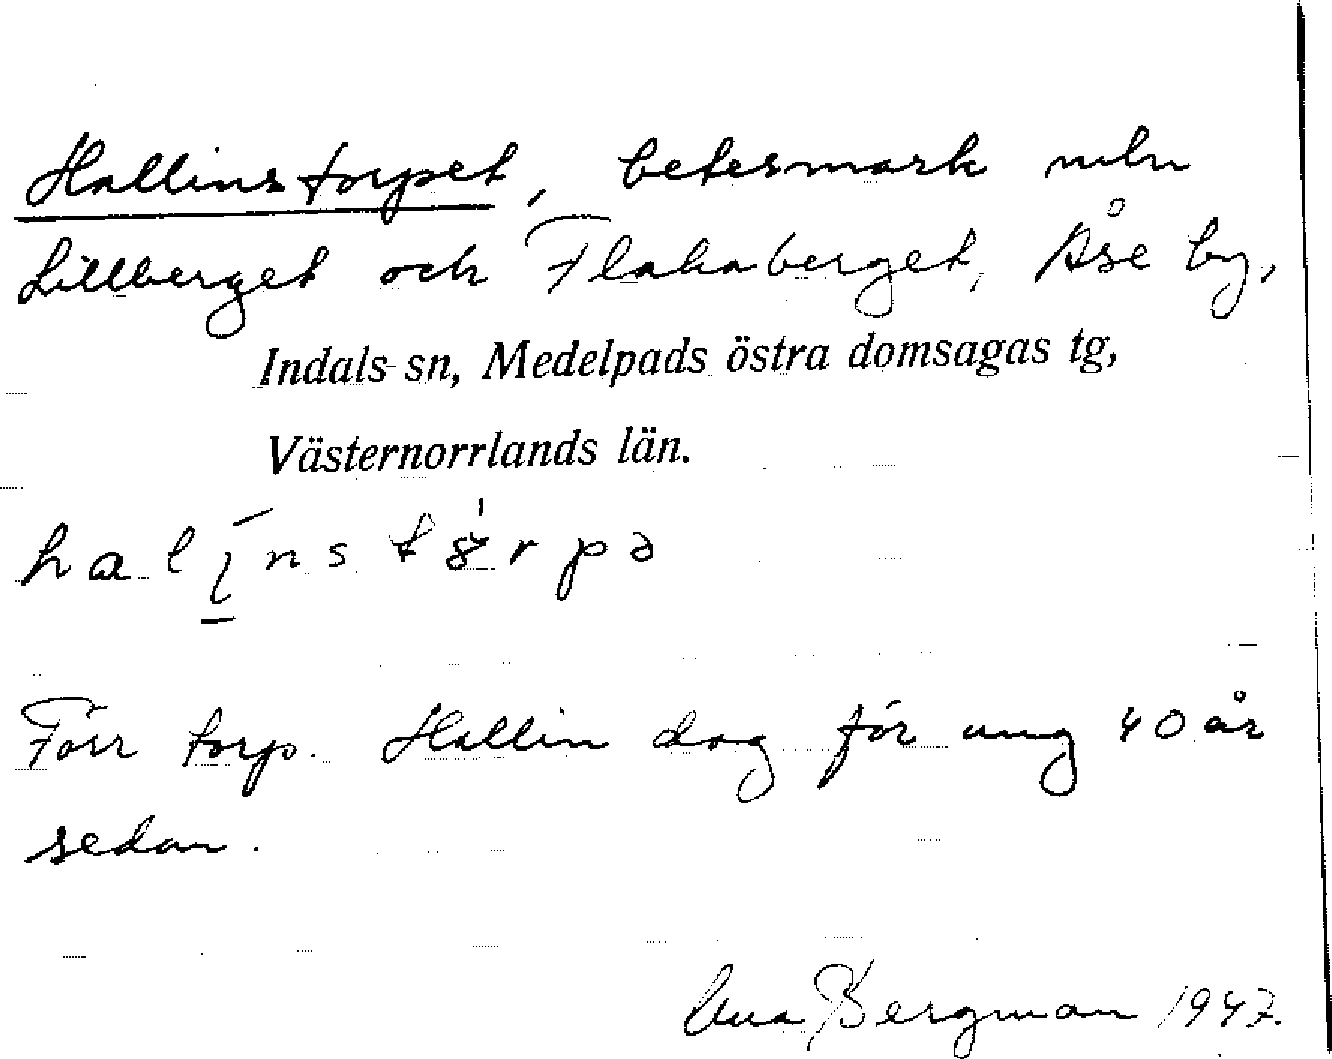 Hallinstorpet, betesmark mln
Lillberget och Flakaberget, Åse by,
Indals sn, Medelpads östra domsagas tg,
Västernorrlands län.
Förr torp. Hallin dog för ung 40 år
sedan.
Bergman 1947.